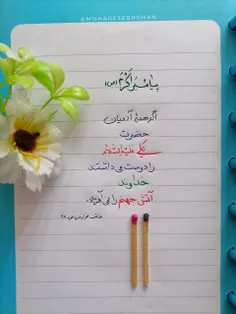 @MOHADESEGHGHANI
پیامبر اکرم (ص)
اگر همه آدمیان
حضرت
علی علیه‌السلام
را دوست می داشتند
خداوند
آتش جهنم را نمی آفرید.